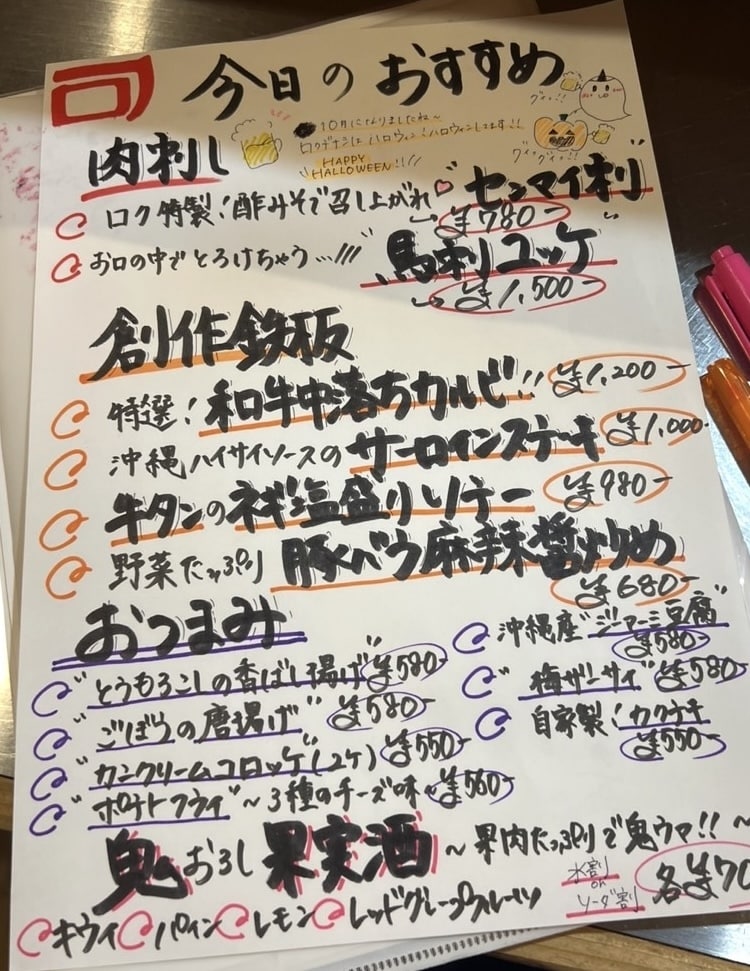 司 今日のおすすめ
グィッ!!
10月になりましたね〜
ロクデナシは ハロウィン!ハロウィンしてます!!
HAPPY
HALLOWEEN!!!
グィッグィッ!!
肉刺し
ロク特製!酢みそで召し上がれ♡ "センマイ刺" ¥780-
お口の中でとろけちゃう…!!! "馬刺しユッケ" ¥1,500-
創作鉄板
特選!和牛中落ちカルビ!! ¥1,200-
沖縄ハイサイソースのサーロインステーキ ¥1,000-
牛タンのネギ塩盛りソテー ¥980-
野菜たっぷり 豚バラ麻辣醤炒め ¥680-
おつまみ
"とうもろこしの香ばし揚げ" ¥580-
"ごぼうの唐揚げ" ¥580-
"カニクリームコロッケ"(2ケ) ¥550-
"ポテトフライ"〜3種のチーズ味 ¥580-
沖縄産"ジーマーミ豆腐" ¥580-
"梅ザーサイ" ¥580-
自家製!カクテキ ¥550-
鬼おろし果実酒 〜果肉たっぷりで鬼ウマ!!〜
水割 or ソーダ割 各¥70
キウイ パイン レモン レッドグレープフルーツ